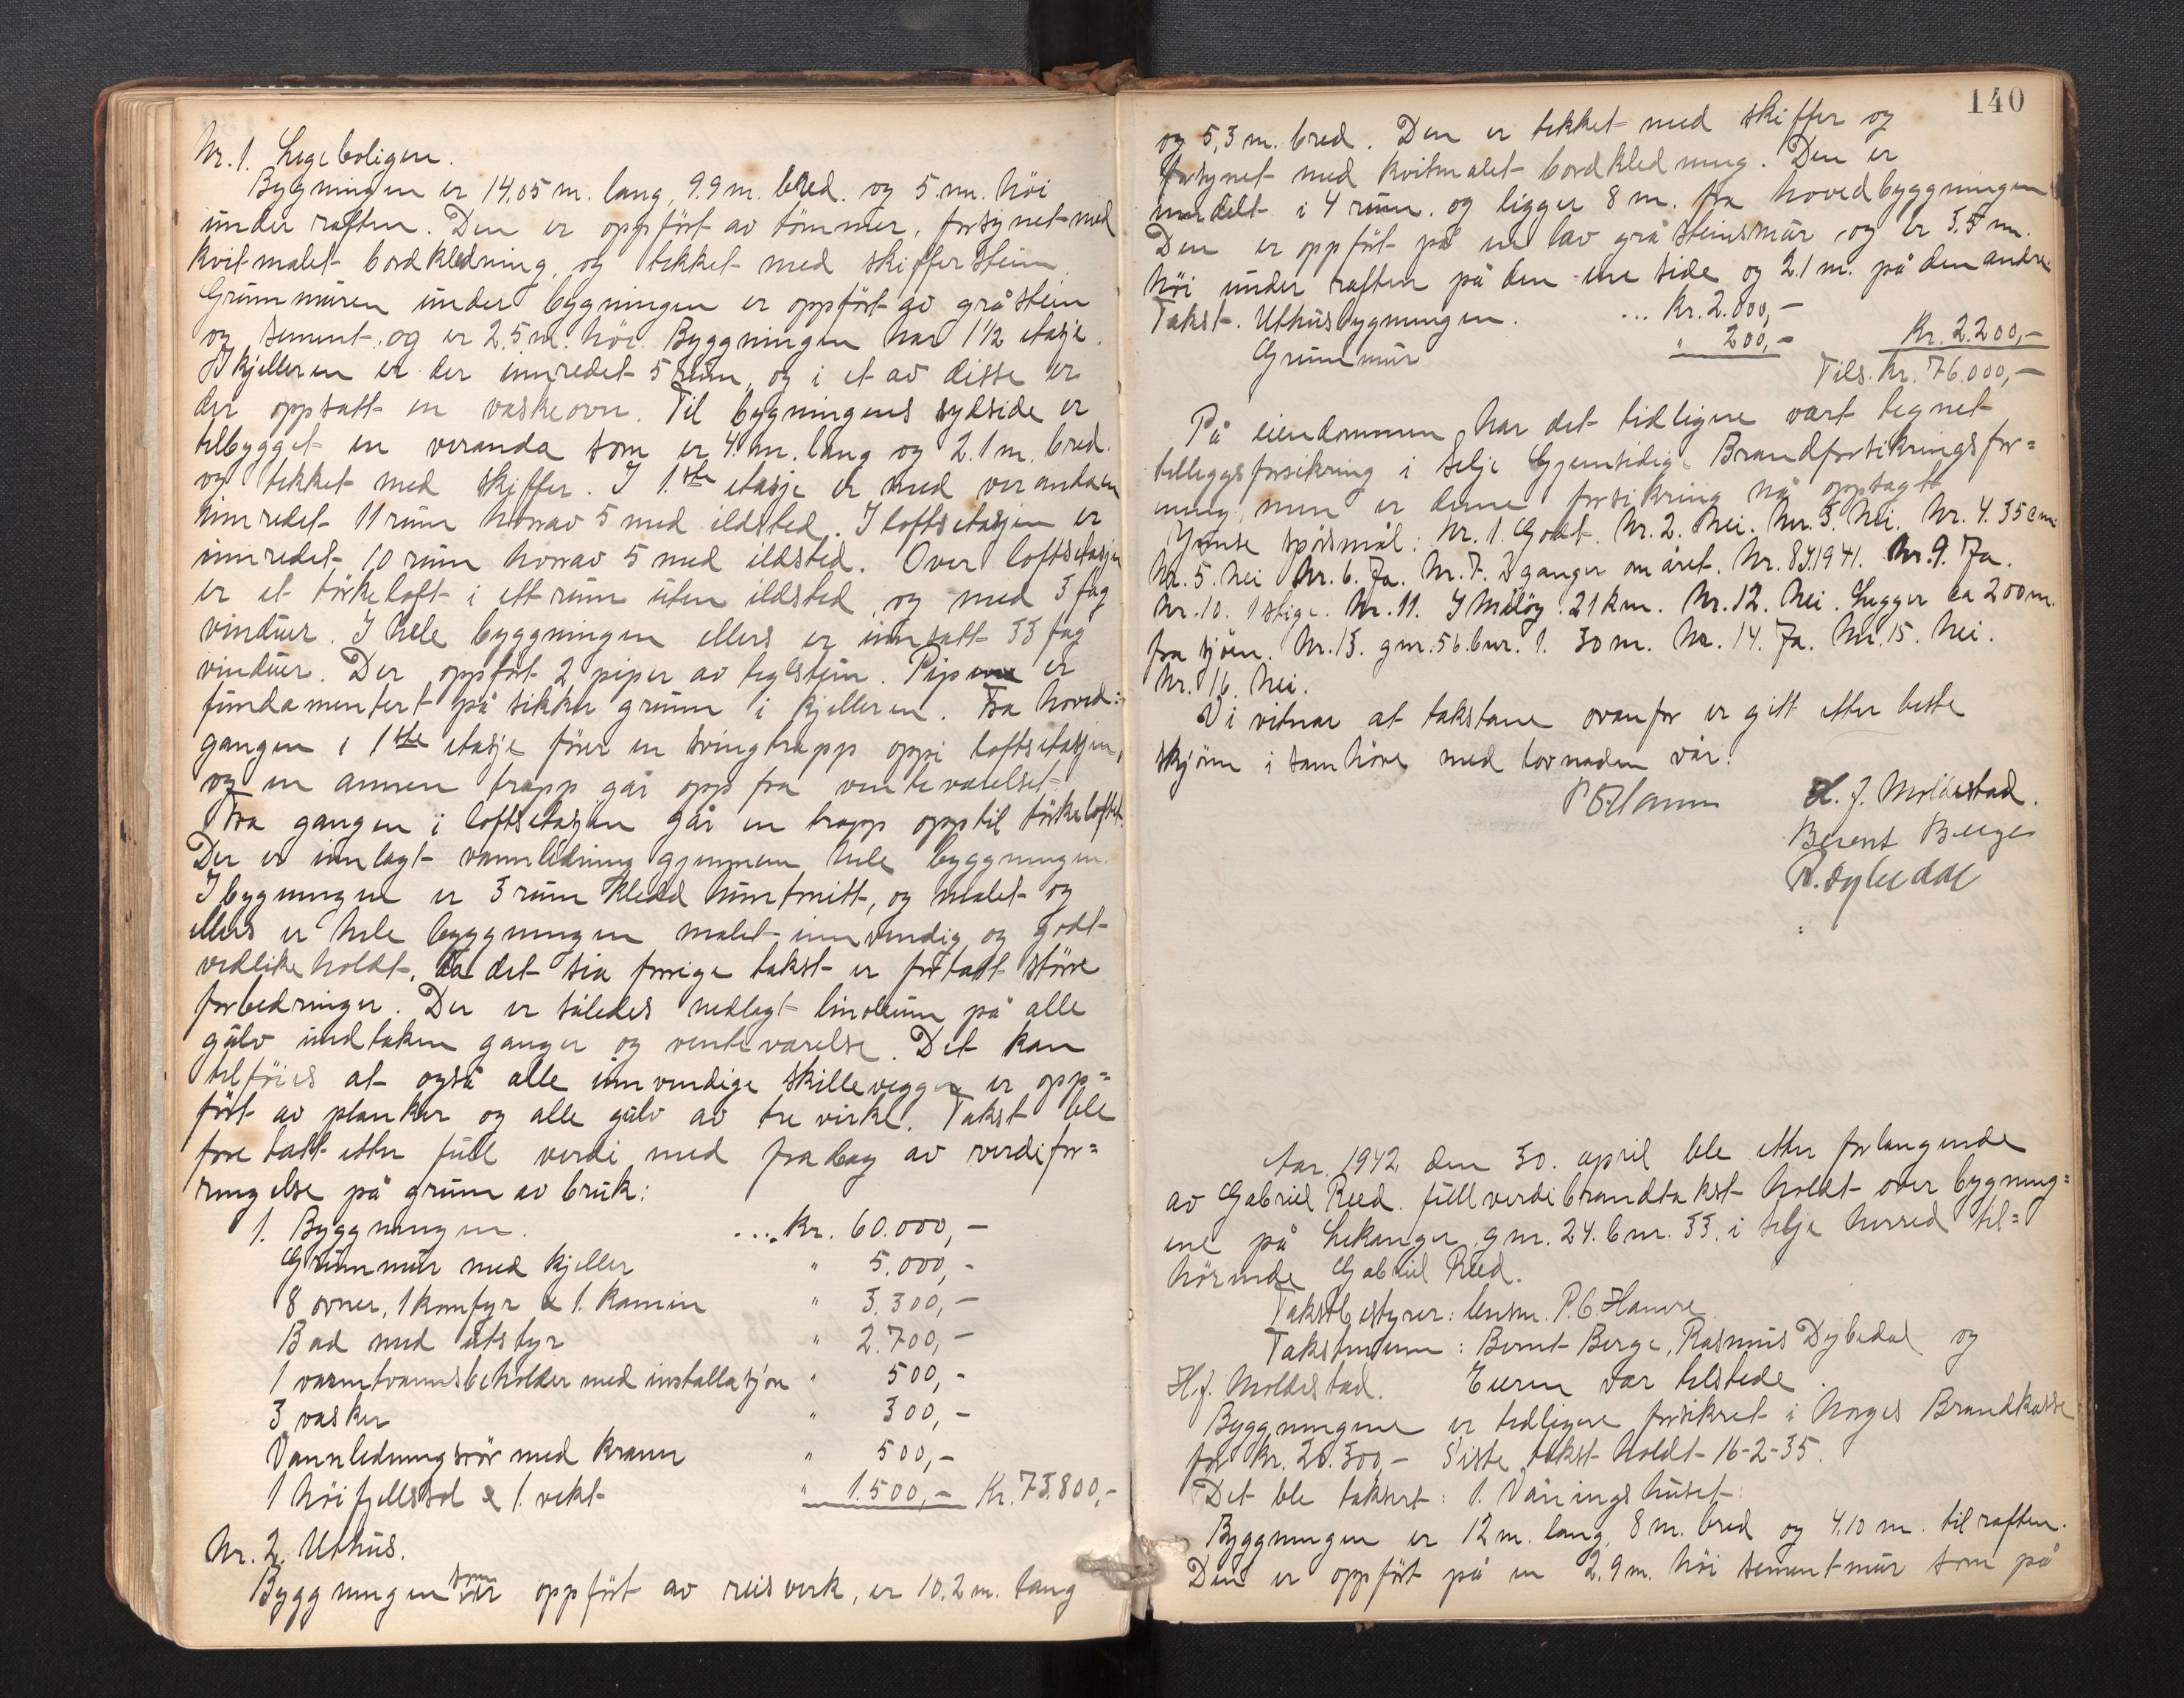 Nr. 1. Legeboligen.
Bygningen er 14,05 m. lang, 9.9 m. bred. og 5. m. höi
under raften. Den er oppfört av tömmer, forsynet med
kvitmalet bordkledning, og tekket med skifferstein.
Grunnmuren under bygningen er oppfört av gråstein
og sement, og er 2,5 m. höi. Byggningen har 1 1/2 etasje.
I kjelleren er der innredet 5 rum, og i et av disse er
der oppsatt en vaskeovn. Til bygningens sydside er
tilbygget en veranda som er 4. m. lang og 2.1 m. bred.
og tekket med skiffer. I 1.ste etasje er med verandaen
innredet 11 rum hvorav 5 med ildsted. I loftsetasjen er
innredet 10 rum hvorav 5 med ildsted. Over loftsetasjen
er et törkeloft i ett rum uten ildsted, og med 3 fag
vinduer. I hele byggningen ellers er innsatt 33 fag
vinduer. Der oppfört 2 piper av teglstein. Pipene er
fundamentert på sikker grunn i kjelleren. Fra hoved:
gangen i 1ste etasje förer en svingtrapp oppi loftsetasjen,
og en annen trapp går opp fra venteværelset.
Fra gangen i loftsetasjen går en trapp opp til törkeloftet.
Der er innlagt vannledning gjennem hele byggningen.
I bygningen er 3 rum kledd huntonitt, og malet og
ellers er hele byggningen malet innvendig og godt
vedlikeholdt, da det sia forrige takst er fortatt större
forbedringer. Der er således nedlagt linoleum på alle
gulv undtaken ganger og venteværelse. Det kan
tilföies at også alle innvendige skillevegger er opp=
fört av planker og alle gulv av trevirke. Takst ble
foretatt etter full verdi med fradrag av verdifor=
ringelse på grunn av bruk:
1. Byggningen. ... Kr. 60.000,-
Grunnmur med kjeller " 5.000,-
8 ovner, 1 komfyr & 1. kamin " 3.300,-
Bad med utstyr " 2.700,-
1 varmtvannsbeholder med installasjon " 500,-
3 vasker " 300,-
Vannledningsrör med kraner " 500,-
1 höifjellssol & 1. vekt " 1.500,- Kr. 73.800,-
Nr. 2. Uthus.
Byggningen som er oppfört av reisverk, er 10,2 m. lang
140
og 5,3 m. bred. Den er tekket med skiffer og
forsynet med kvitmalet bordkledning. Den er
inndelt i 4 rum. og ligger 8 m. fra hovedbyggningen
Den er oppfört på en lav gråsteinsmur, og er 3,5 m.
höi under raften på den ene side og 2.1 m. på den andre
Takst. Uthusbygningen. ... Kr. 2.000,-
Grunnmur " 200,- Kr. 2.200,-
Tils. Kr. 76.000,-
På eiendommen har det tidligere vært tegnet
tilleggsforsikring i Selje Gjensidige Brandforsikringsfor=
ening, men er denne forsikring nå oppsagt.
Ymse spörsmål: Nr. 1. Godt. Nr. 2. Nei. Nr. 3. Nei. Nr. 4. 35 cm.
Nr. 5. Nei Nr. 6. Ja. Nr. 7. 2 ganger om året. Nr. 8 I 1941. Nr. 9. Ja.
Nr. 10. 1 stige. Nr. 11. I Målöy. 21 km. Nr. 12. Nei. Ligger ca 200 m.
fra sjöen. Nr. 13. gnr. 56. bnr. 1. 30 m. Nr. 14. Ja. Nr. 15. Nei.
Nr. 16. Nei.
Vi vitnar at takstane ovanfor er gitt etter beste
skjönn i samhöve med lovnaden vår.
H. J. Moldestad.
Berent Berge
R. Dybedal
Aar. 1942 den 30. april ble etter forlangende
av Gabriel Reed. fullverdibrandtakst holdt over bygning=
ene på Leikanger, gnr. 24. bnr. 33. i Selje herred til=
hörende Gabriel Reed.
Takstbestyrer: lensm. P. C. Hamre.
Takstmenn: Bernt Berge, Rasmus Dybedal og
H. J. Moldestad. Eieren var tilstede.
Byggningene er tidligere forsikret i Norges Brandkasse
for Kr. 20.300,- Siste takst holdt 16-2-35.
Det ble taksert: 1. Våningshuset.
Byggningen er 12 m. lang, 8 m. bred og 4.10 m. til raften.
Den er oppfört på en 2.9 m. höi sementmur som på